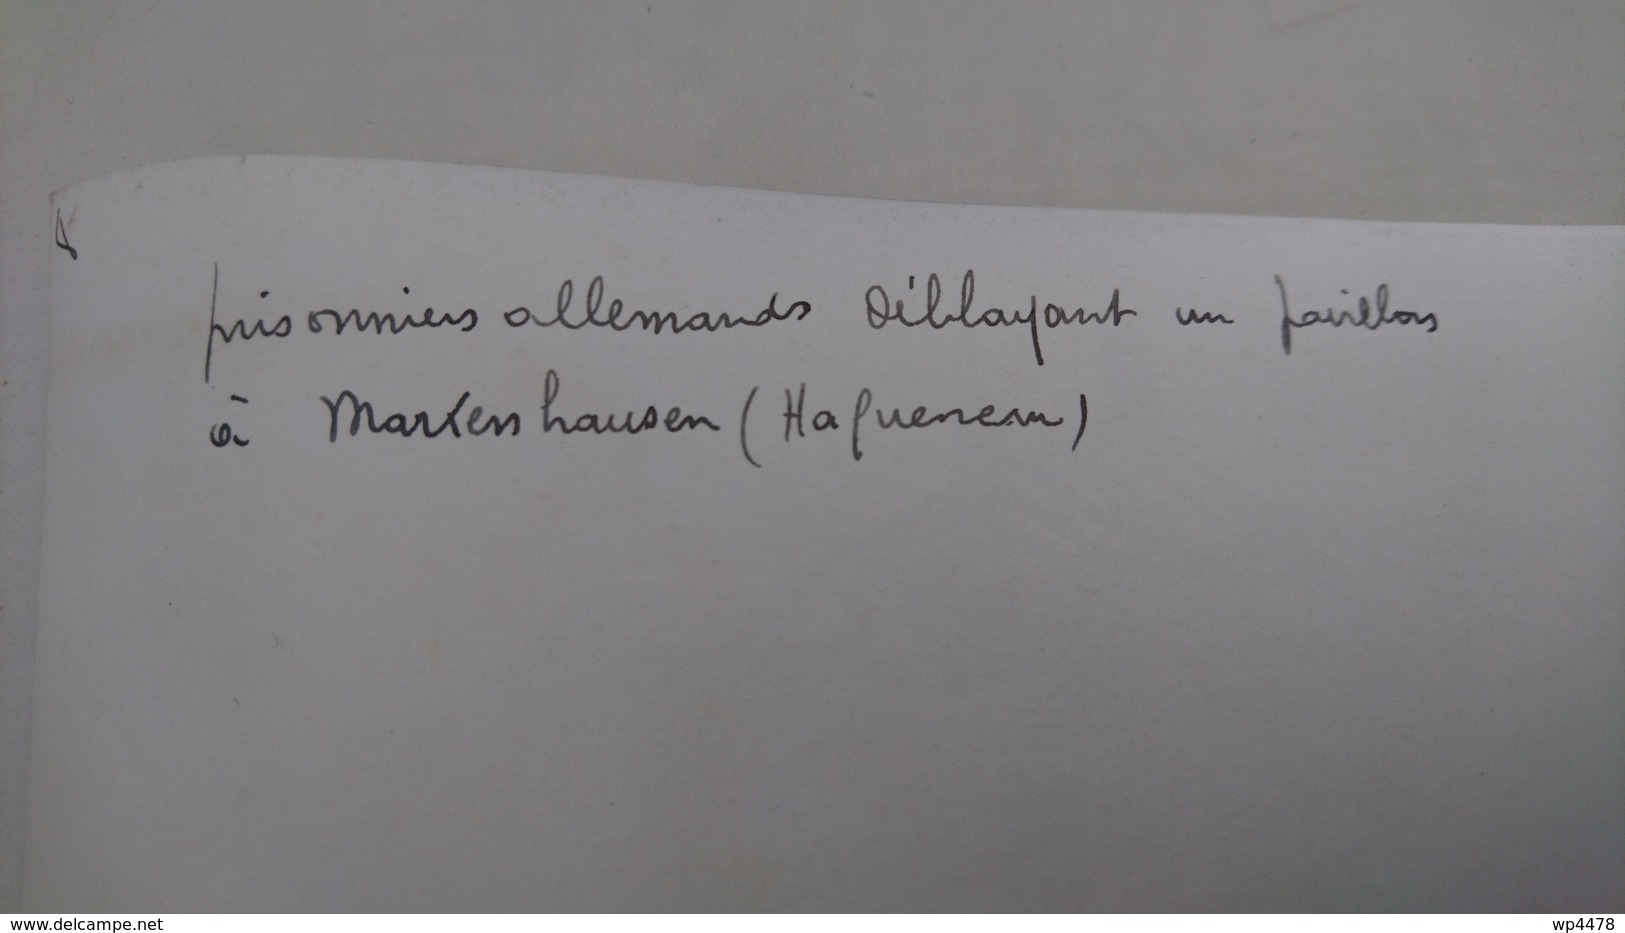 prisonniers allemands déblayant un pavillon
à Martenshausen (Haguenau)
www.delcampe.net
wp4478